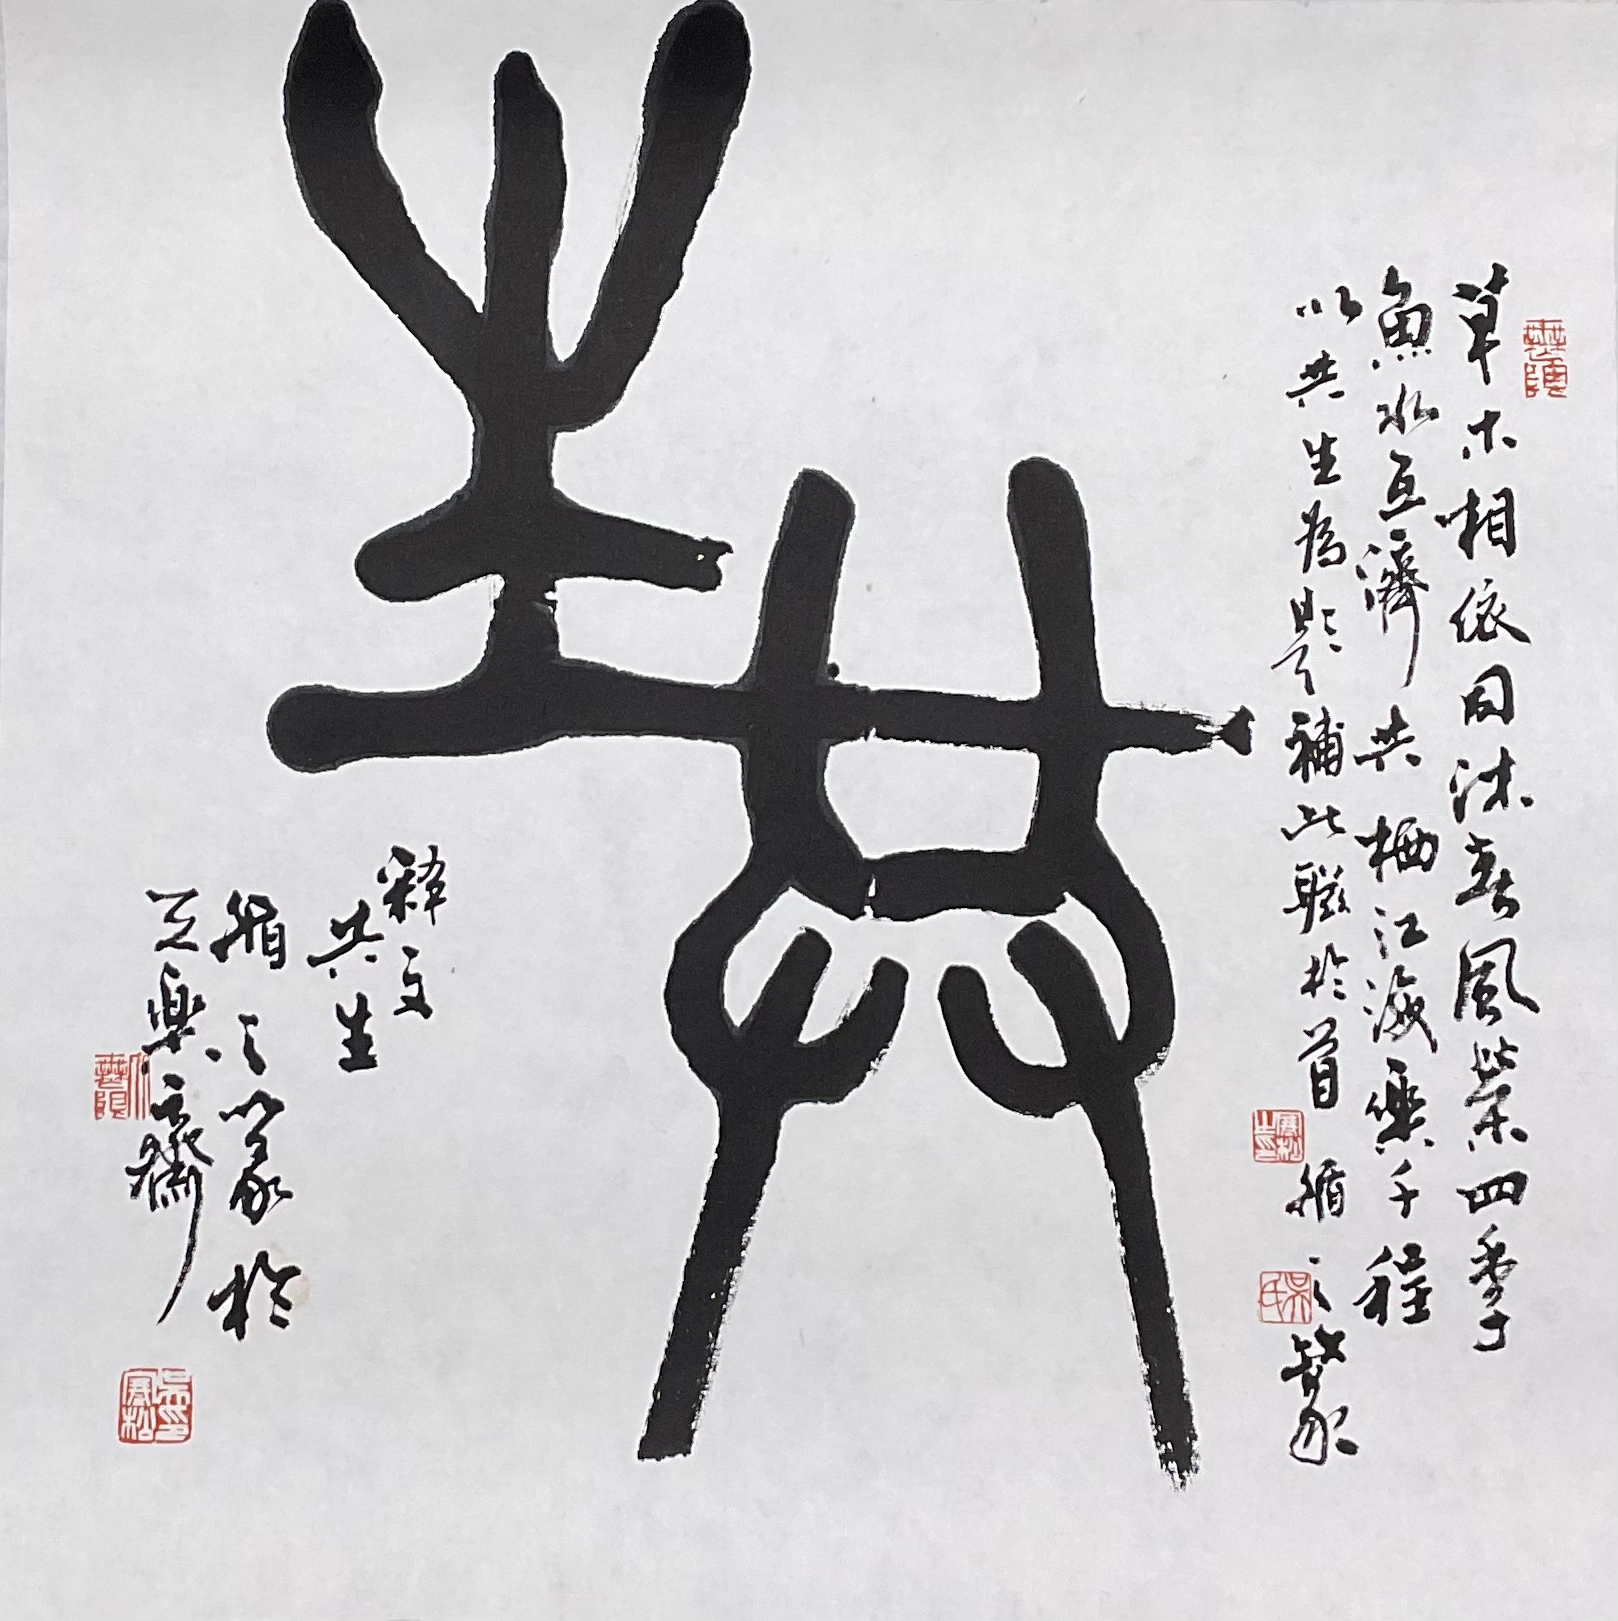 共生
草木相依同沐春風榮四季
魚水互濟共栖江海樂千程
以共生為題補此聯於首循之篆
釋文
共生
循之以篆於
天樂齋